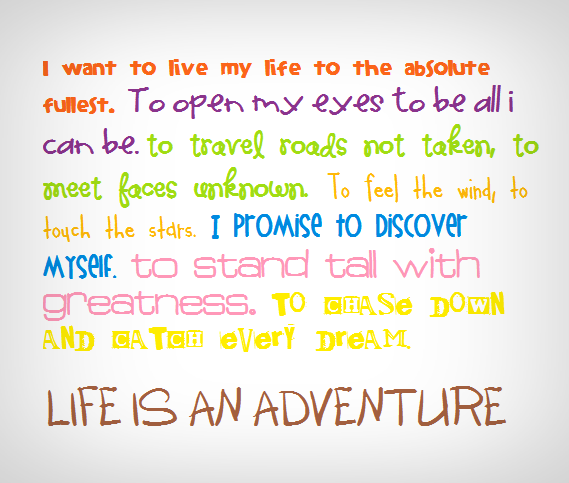 I want to live my life to the absolute
fullest. To open my eyes to be all i
can be. to travel roads not taken, to
meet faces unknown. To feel the wind, to
touch the stars. I PROMISE to DISCOVER
MYSELF. to stand tall with
greatness. TO CHASE DOWN
AND CATCH EVERY DREAM.
LIFE IS AN ADVENTURE